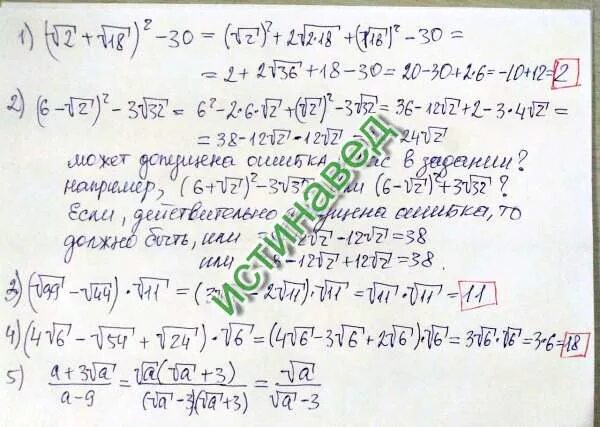 1) (√2 + √18)² − 30 = (√2)² + 2√2·18 + (√18)² − 30 =
= 2 + 2√36 + 18 − 30 = 20 − 30 + 2·6 = −10 + 12 = 2
2) (6 − √2)² − 3√32 = 6² − 2·6·√2 + (√2)² − 3√32 = 36 − 12√2 + 2 − 3·4√2 =
= 38 − 12√2 · 12√2 = 24√2
может допущена ошибка в задании?
например, (6+√2)² − 3√32 или (6−√2)² + 3√32 ?
Если, действительно допущена ошибка, то
должно быть, или 12√2 − 12√2 = 38
или 8 − 12√2 + 12√2 = 38.
3) (√99 − √44) · √11 = (3 − 2√11) · √11 = √11 · √11 = 11
4) (4√6 − √54 + √24) · √6 = (4√6 − 3√6 + 2√6) · √6 = 3√6 · √6 = 3·6 = 18
5) (a + 3√a)/(a − 9) = √a(√a + 3)/((√a − 3)(√a + 3)) = √a/(√a − 3)
истинавед